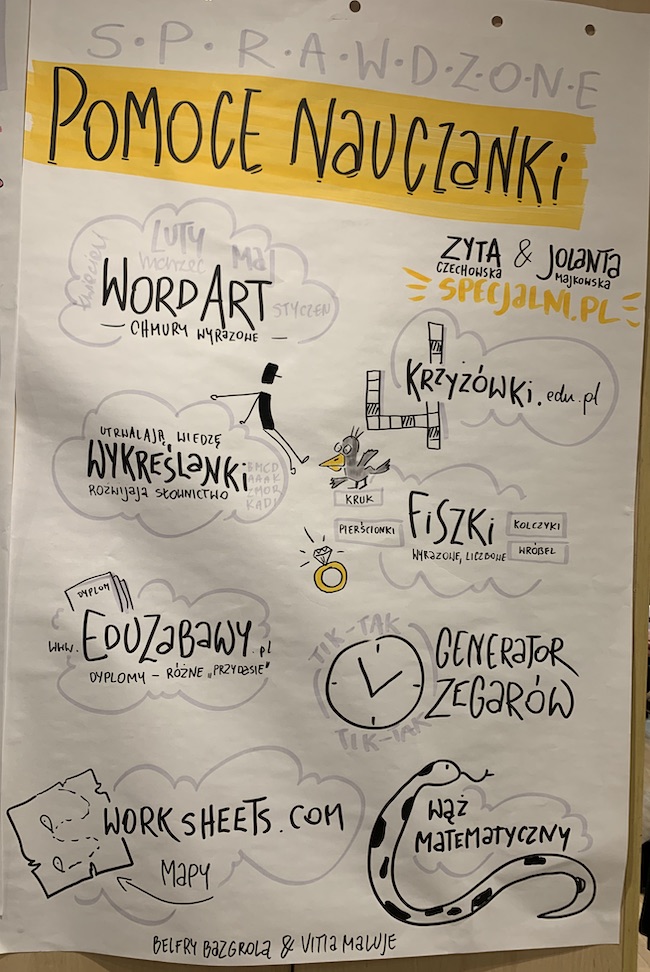 S·P·R·A·W·D·Z·O·N·E
POMOCE NAUCZANKI
LUTY
MAJ
kwiecień
marzec
WORD ART
STYCZEŃ
— CHMURY WYRAZOWE —
ZYTA & JOLANTA
CZECHOWSKA MAJKOWSKA
SPECJALNI.PL
KRZYŻÓWKI.edu.pl
UTRWALAJĄ WIEDZĘ
WYKREŚLANKI
ROZWIJAJĄ SŁOWNICTWO
KRUK
PIERŚCIONKI
FISZKI
KOLCZYKI
WYRAZOWE, LICZBOWE
WRÓBEL
DYPLOM
www.EDUZABAWY.pl
DYPLOMY – RÓŻNE „PRZYDASIE"
TIK-TAK
GENERATOR
ZEGARÓW
TIK-TAK
WORKSHEETS.COM
MAPY
WĄŻ
MATEMATYCZNY
BELFRY BAZGROLĄ & VITIA MALUJE